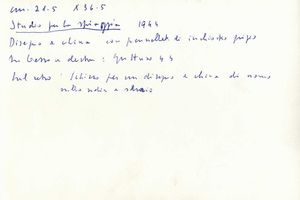 cm. 28.5 x 36.5
Studio per la spiaggia 1944
Disegno a china con pennellate di inchiostro grigio
In basso a destra: Guttuso 44
Sul retro: schizzo per un disegno a china di